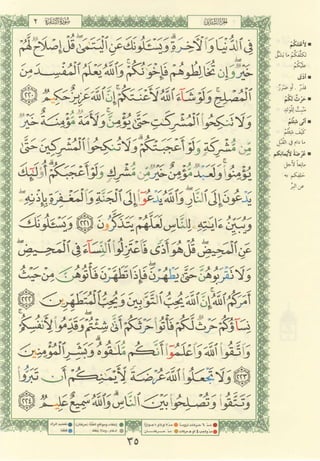 سورة البقرة ٢
الجزء الثاني
فِى ٱلدُّنْيَا وَٱلْـَٔاخِرَةِ وَيَسْـَٔلُونَكَ عَنِ ٱلْيَتَـٰمَىٰ قُلْ إِصْلَاحٌ لَّهُمْ
خَيْرٌ وَإِن تُخَالِطُوهُمْ فَإِخْوَٰنُكُمْ وَٱللَّهُ يَعْلَمُ ٱلْمُفْسِدَ مِنَ
ٱلْمُصْلِحِ وَلَوْ شَآءَ ٱللَّهُ لَأَعْنَتَكُمْ إِنَّ ٱللَّهَ عَزِيزٌ حَكِيمٌ ٢٢٠
وَلَا تَنكِحُوا۟ ٱلْمُشْرِكَـٰتِ حَتَّىٰ يُؤْمِنَّ وَلَأَمَةٌ مُّؤْمِنَةٌ خَيْرٌ
مِّن مُّشْرِكَةٍ وَلَوْ أَعْجَبَتْكُمْ وَلَا تُنكِحُوا۟ ٱلْمُشْرِكِينَ حَتَّىٰ
يُؤْمِنُوا۟ وَلَعَبْدٌ مُّؤْمِنٌ خَيْرٌ مِّن مُّشْرِكٍ وَلَوْ أَعْجَبَكُمْ أُو۟لَـٰٓئِكَ
يَدْعُونَ إِلَى ٱلنَّارِ وَٱللَّهُ يَدْعُوٓا۟ إِلَى ٱلْجَنَّةِ وَٱلْمَغْفِرَةِ بِإِذْنِهِۦ
وَيُبَيِّنُ ءَايَـٰتِهِۦ لِلنَّاسِ لَعَلَّهُمْ يَتَذَكَّرُونَ ٢٢١ وَيَسْـَٔلُونَكَ
عَنِ ٱلْمَحِيضِ قُلْ هُوَ أَذًى فَٱعْتَزِلُوا۟ ٱلنِّسَآءَ فِى ٱلْمَحِيضِ
وَلَا تَقْرَبُوهُنَّ حَتَّىٰ يَطْهُرْنَ فَإِذَا تَطَهَّرْنَ فَأْتُوهُنَّ مِنْ حَيْثُ
أَمَرَكُمُ ٱللَّهُ إِنَّ ٱللَّهَ يُحِبُّ ٱلتَّوَّٰبِينَ وَيُحِبُّ ٱلْمُتَطَهِّرِينَ ٢٢٢
نِسَآؤُكُمْ حَرْثٌ لَّكُمْ فَأْتُوا۟ حَرْثَكُمْ أَنَّىٰ شِئْتُمْ وَقَدِّمُوا۟ لِأَنفُسِكُمْ
وَٱتَّقُوا۟ ٱللَّهَ وَٱعْلَمُوٓا۟ أَنَّكُم مُّلَـٰقُوهُ وَبَشِّرِ ٱلْمُؤْمِنِينَ
٢٢٣ وَلَا تَجْعَلُوا۟ ٱللَّهَ عُرْضَةً لِّأَيْمَـٰنِكُمْ أَن تَبَرُّوا۟
وَتَتَّقُوا۟ وَتُصْلِحُوا۟ بَيْنَ ٱلنَّاسِ وَٱللَّهُ سَمِيعٌ عَلِيمٌ ٢٢٤
لأعنتكم
أذى
حرث لكم
أنى شئتم
عرضة لأيمانكم
٣٥